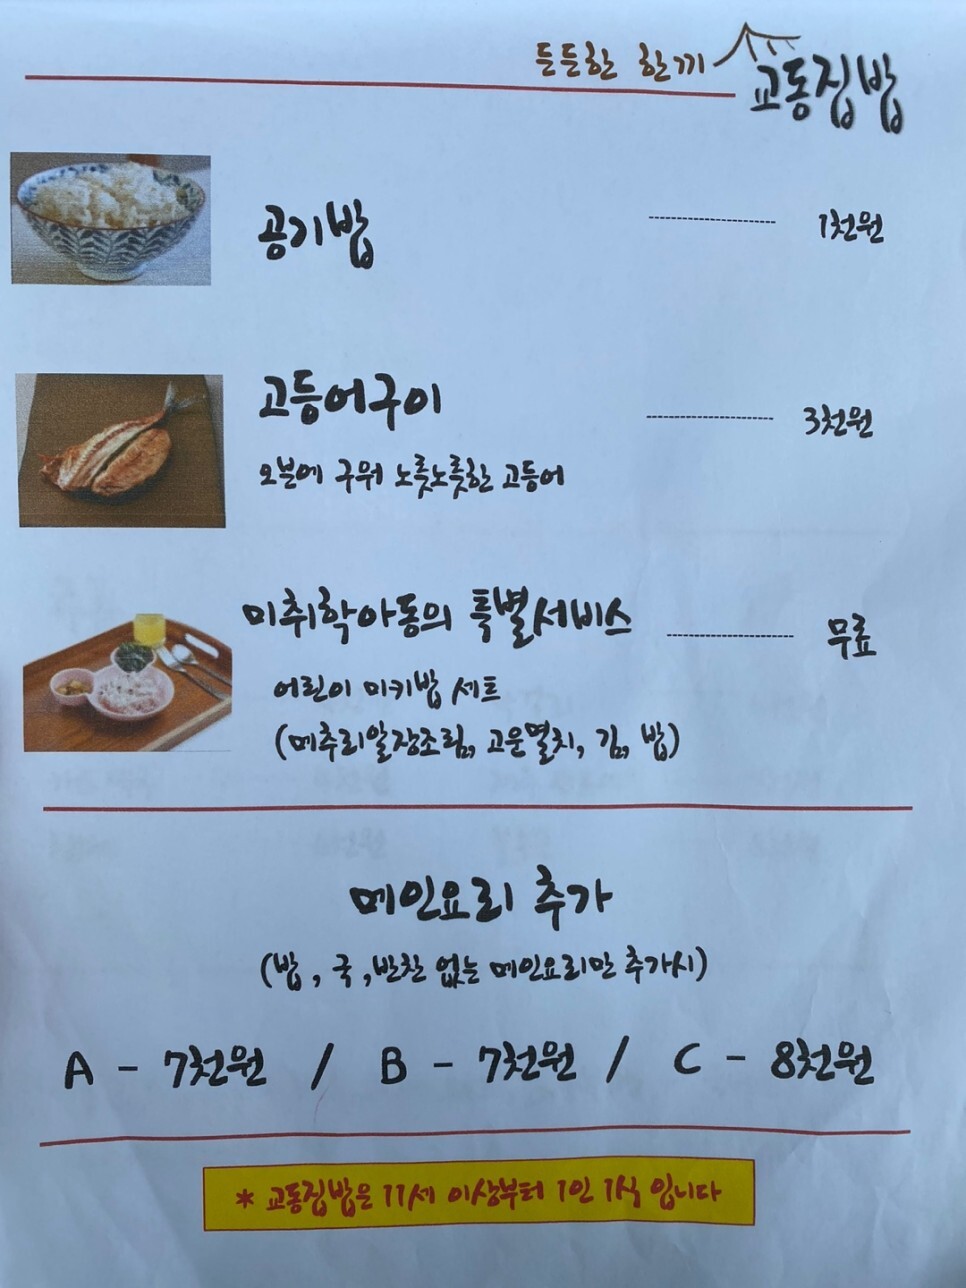 든든한 한끼 교동집밥
공기밥 1천원
고등어구이 3천원
오븐에 구워 노릇노릇한 고등어
미취학아동의 특별서비스 무료
어린이 미키밥 세트
(메추리알장조림, 고운멸치, 김, 밥)
메인요리 추가
(밥, 국, 반찬 없는 메인요리만 추가시)
A - 7천원 / B - 7천원 / C - 8천원
* 교동집밥은 11세 이상부터 1인 1식 입니다